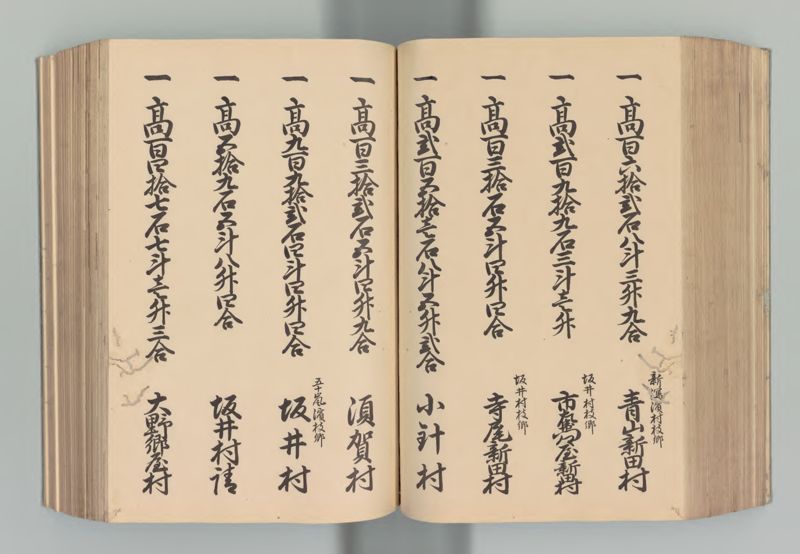 一 高百六拾弐石八斗三升九合
新潟濱村枝郷
青山新田村
一 高弐百九拾九石三斗壱升
坂井村枝郷
市場屋新田村
一 高百三拾石五斗四升四合
坂井村枝郷
寺尾新田村
一 高弐百五拾壱石八斗五升弐合
小針村
一 高百三拾弐石五斗四升九合
須賀村
一 高九百九拾弐石四斗四升四合
五十嵐濱枝郷
坂井村
一 高五拾九石五斗八升四合
坂井村請
一 高百四拾七石七斗壱升三合
大野村